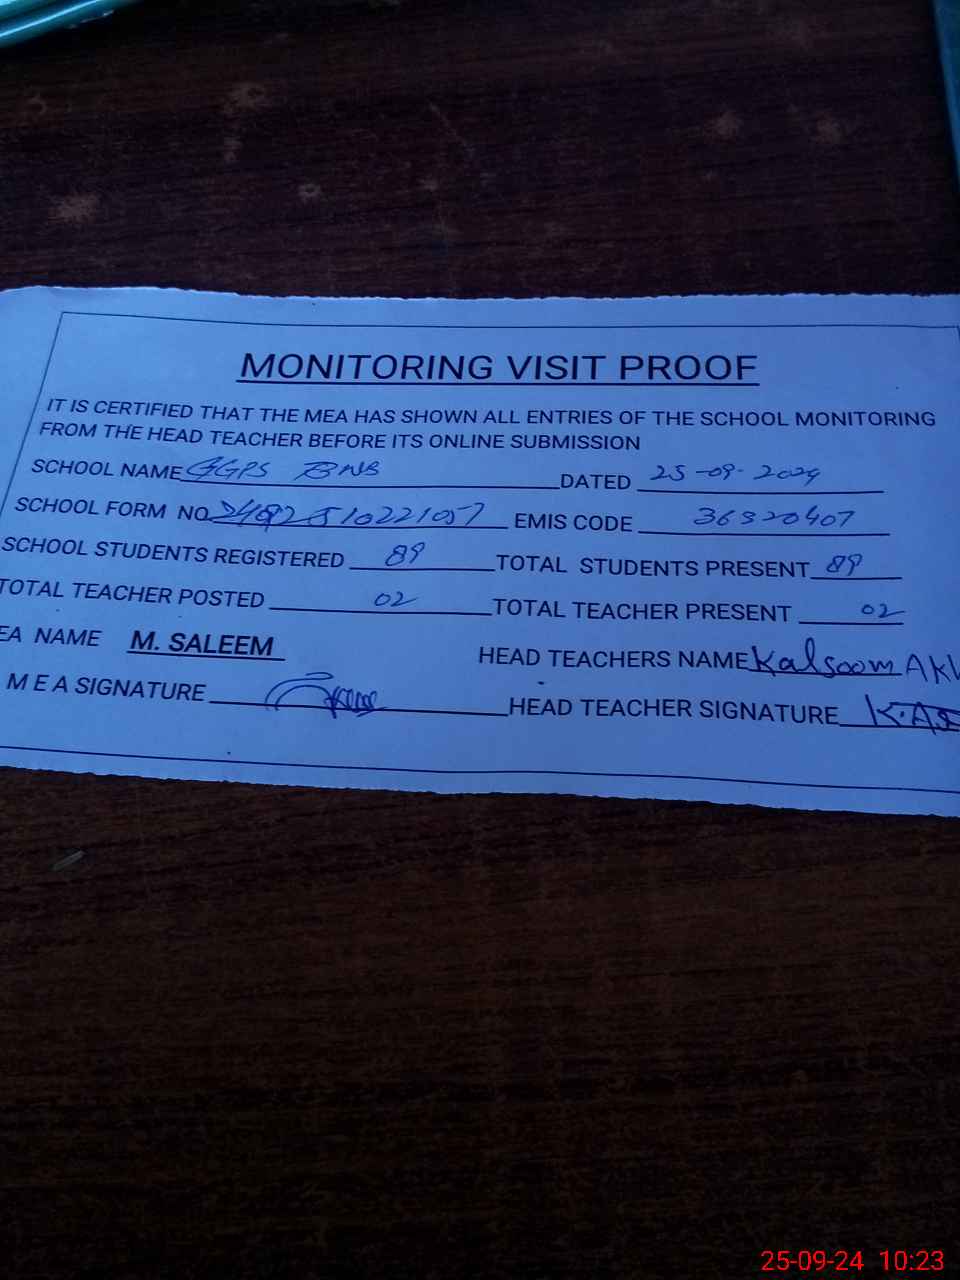 MONITORING VISIT PROOF
IT IS CERTIFIED THAT THE MEA HAS SHOWN ALL ENTRIES OF THE SCHOOL MONITORING
FROM THE HEAD TEACHER BEFORE ITS ONLINE SUBMISSION
SCHOOL NAME GGPS DATED 25-09-2024
SCHOOL FORM NO EMIS CODE 36320407
SCHOOL STUDENTS REGISTERED 89 TOTAL STUDENTS PRESENT 89
TOTAL TEACHER POSTED 02 TOTAL TEACHER PRESENT 02
EA NAME M. SALEEM HEAD TEACHERS NAME Kalsoom
M E A SIGNATURE HEAD TEACHER SIGNATURE
25-09-24 10:23